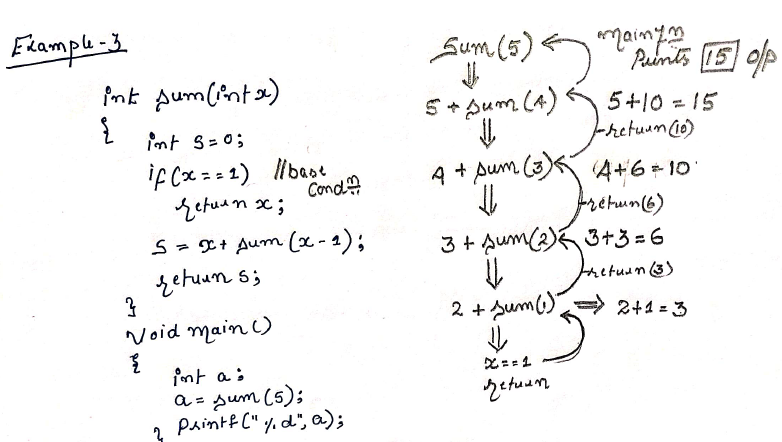 Example-3
int sum(int x)
{
int s=0;
if(x==1) //base
Condn
return x;
s = x+ sum(x-1);
return s;
}
Void main()
{
int a;
a = sum(5);
} printf("%d", a);
Sum(5)
main fn
Prints 15 O/P
5 + sum(4) 5+10 = 15
return(10)
4 + sum(3) 4+6=10
return(6)
3 + sum(2) 3+3=6
return(3)
2 + sum(1) ⇒ 2+1=3
x==1
return